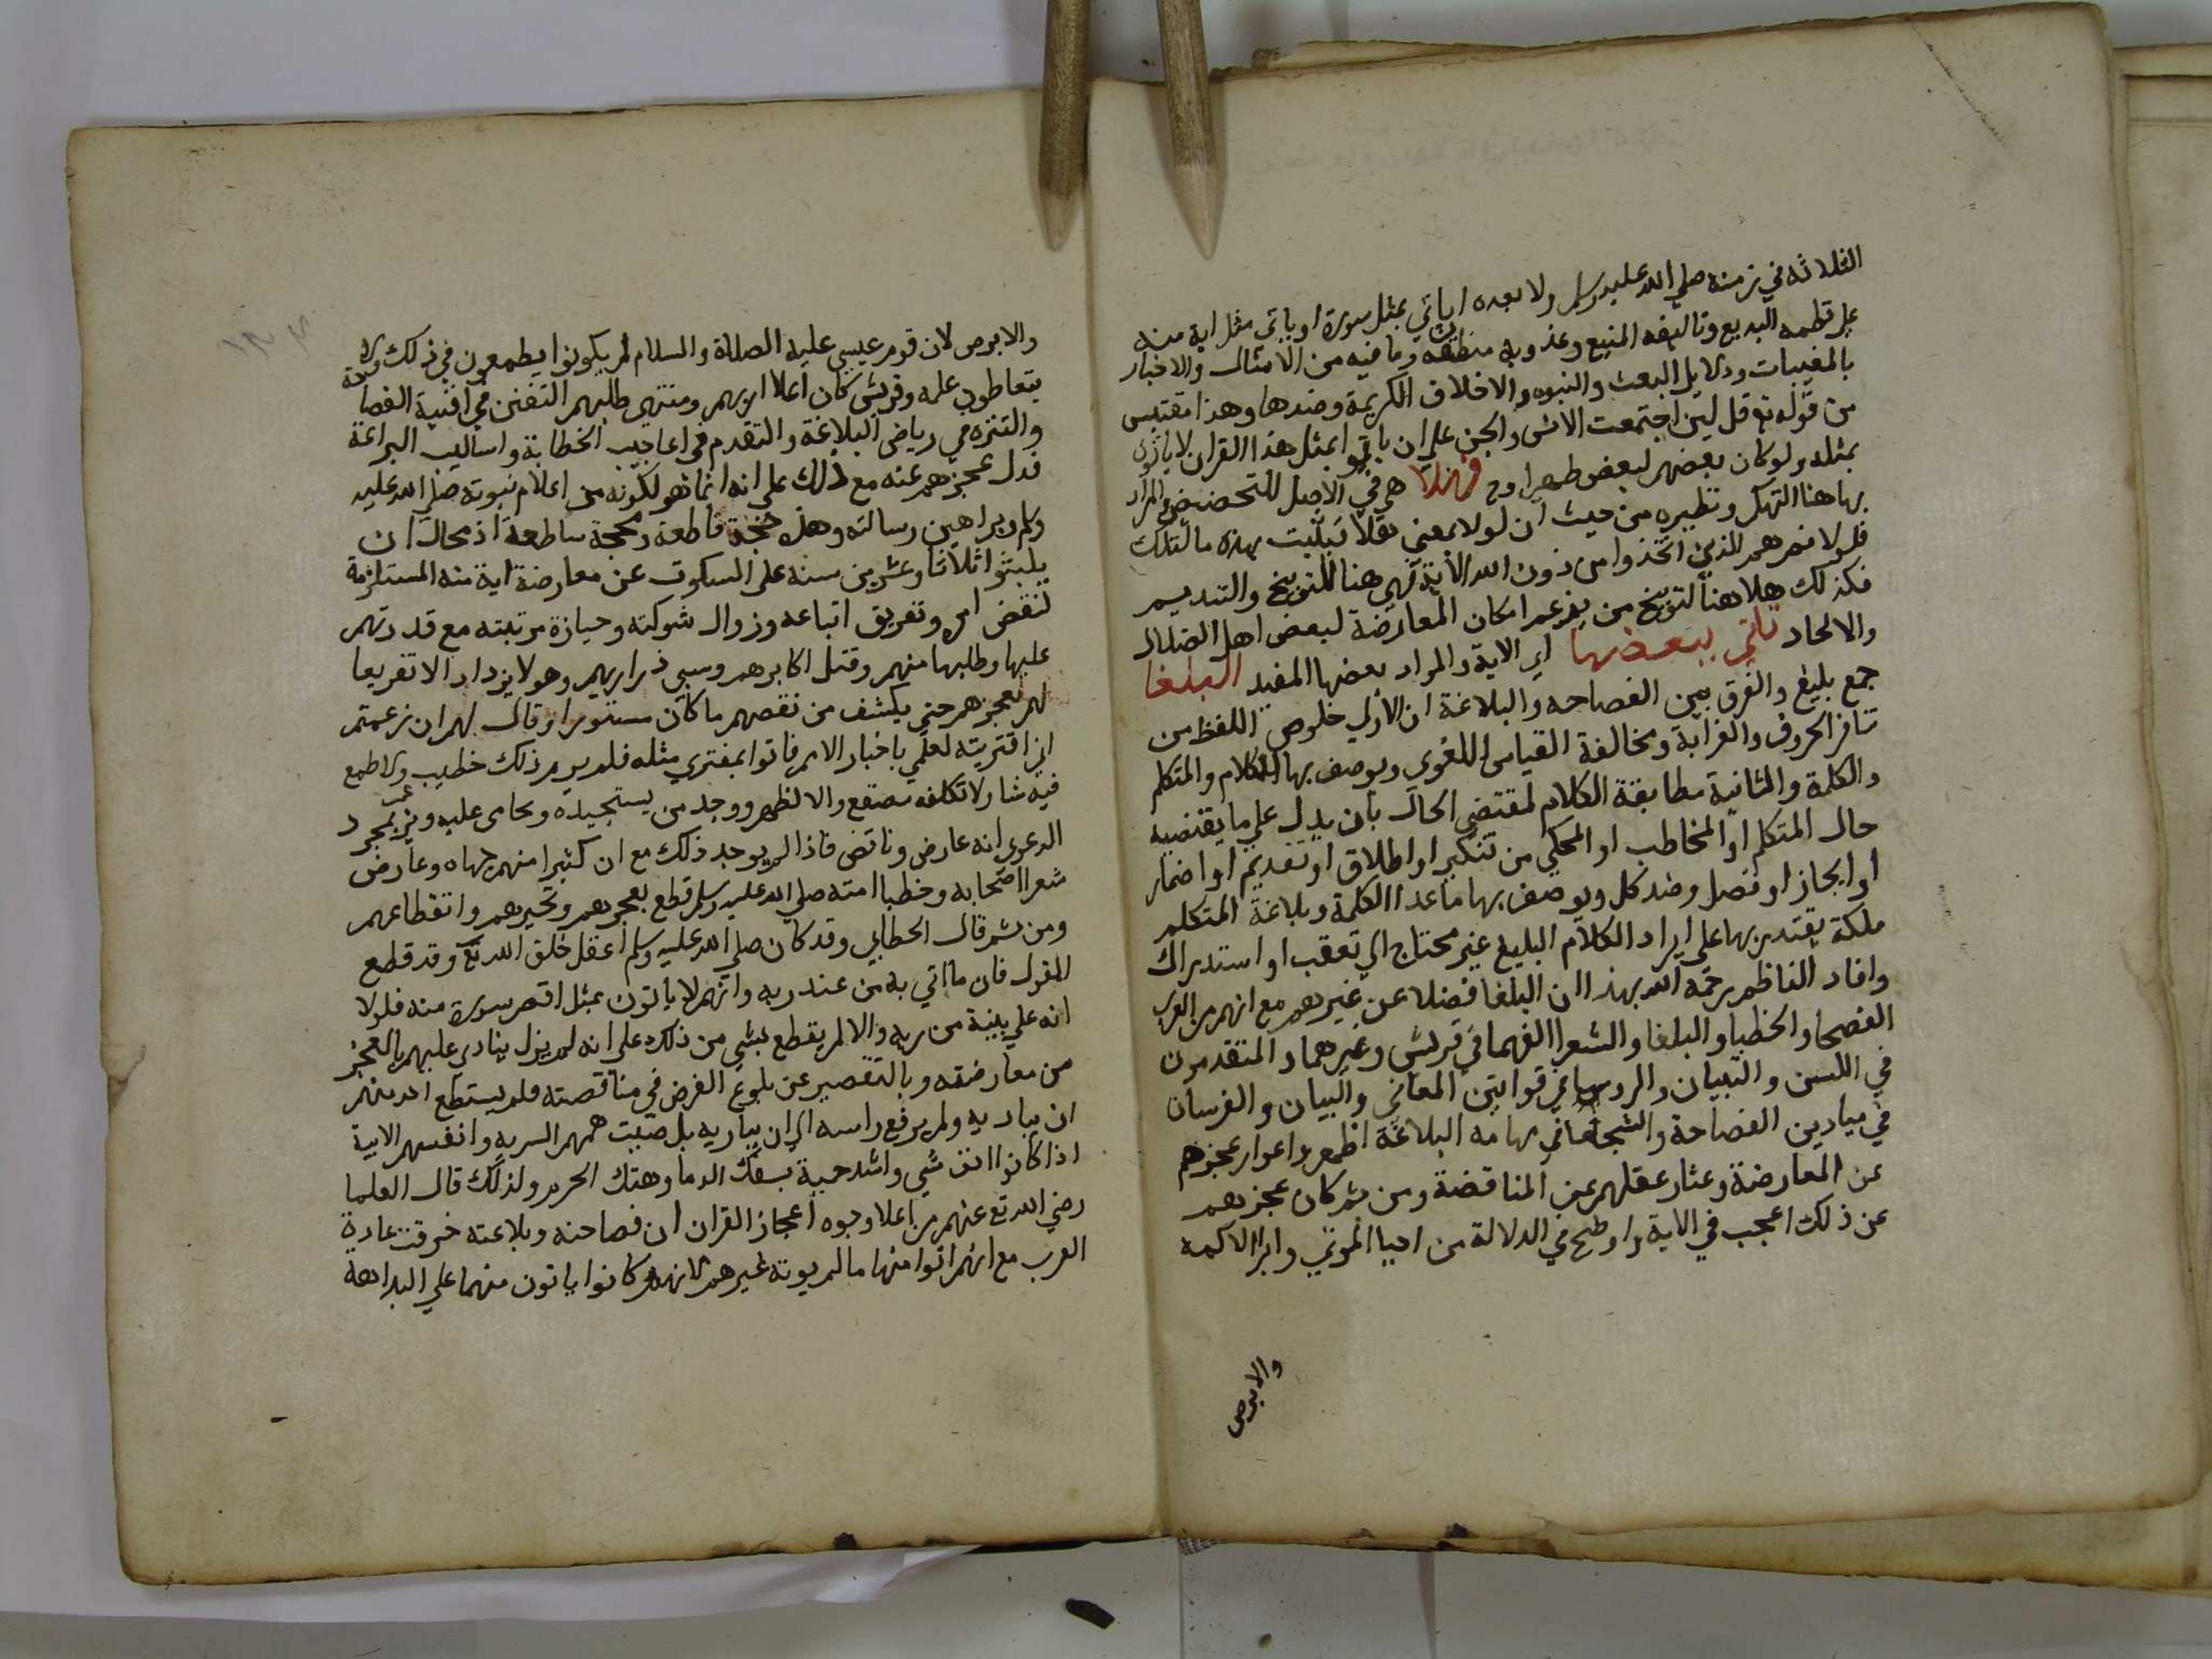 الثلاثه في زمنه صلي الله عليه وسلم ولا بعده ان ياتي بمثل سورة او ياتي مثل اية منه
علي نظمه البديع وتاليفه المنيع وعذوبة منطقه وما فيه من الامثال والاخبار
بالمغيبات ودلايل البعث والنبوه والاخلاق الكريمة وضدها وهذا مقتبس
من قوله تع قل لين اجتمعت الانس والجن علي ان ياتوا بمثل هذا القران لا ياتون
بمثله ولو كان بعضهم لبعض ظهيرا وح فهلا هي في الاصل للتحضيض والمراد
بها هنا التهكم ونظيره من حيث ان لولا بمعني هلا نبليت بهذه ما لتلك
فلولا نصرهم الذين اتخذوا من دون الله الاية فهي هنا للتوبيخ والتنديم
فكذلك هلا هنا لتوبيخ من يزعم امكان المعارضة لبعض اهل الضلال
والالحاد تاتي ببعضها اي الاية والمراد بعضها المفيد البلغا
جمع بليغ والفرق بين الفصاحه والبلاغة ان الاولي خلوص اللفظ من
تنافر الحروف والغرابة ومخالفة القياس اللغوي ويوصف بها الكلام والمتكلم
والكلمة والثانية مطابقة الكلام لمقتضي الحال بان يدل علي ما يقتضيه
حال المتكلم او المخاطب او المحكي من تنكير او اطلاق او تقديم او اضمار
او ايجاز او فصل وضد كل ويوصف بها ما عدا الكلمة وبلاغة المتكلم
ملكة يقتدر بها علي ايراد الكلام البليغ غير محتاج الي تعقب او استدراك
وافاد الناظم رحمة الله بهذا ان البلغا فضلا عن غيرهم مع انهم من العرب
الفصحا والخطبا والبلغا والشعرا الفهما في قريش وغيرهما والمتقدمون
في اللسن والتبيان والروسا في قوانين المعاني والبيان والفرسان
في ميادين الفصاحة والشجعان في مهامه البلاغة اظهروا عوار عجزهم
عن المعارضة وعثار عقلهم عن المناقضة ومن ثم كان عجزهم
عن ذلك اعجب في الاية واوضح في الدلالة من احيا الموتي وابرا الاكمه
والابرص
والابرص لان قوم عيسي عليه الصلاة والسلام لم يكونوا يطمعون في ذلك ولا
يتعاطون علمه وقريش كان اعلا اربهم ومنتهي طلبهم التفنن في افنية الفصاحة
والتنزه في رياض البلاغة والتقدم في اعاجيب الخطابة واساليب البراعة
فدل عجزهم عنه مع ذلك علي انه انما هو لكونه من اعلام نبوته صلي الله عليه
وسلم وبراهين رسالته وهذه حجة قاطعة ومحجة ساطعة اذ محال ان
يلبثوا ثلاثا وعشرين سنه علي السكوت عن معارضة اية منه المستلزمة
لنقض امره وتفريق اتباعه وزوال شوكته وحيازة مرتبته مع قدرتهم
عليها وطلبها منهم وقتل اكابرهم وسبي ذراريهم وهو لا يزداد الا تقريعا
لهم بعجزهم حتي يكشف من نقصهم ما كان مستورا وقال لهم ان زعمتم
اني افتريته لعلمي باخبار الامم فاتوا بمفتري مثله فلم يرم ذلك خطيب ولا طمع
فيه شاعر ولا تكلفه مصقع والا لظهر ووجد من يستجيده ويحامي عليه ويزعم بمجرد
الدعوي انه عارض وناقض فاذا لم يوجد ذلك مع ان كثيرا منهم هجاه وعارض
شعرا اصحابه وخطبا امته صلي الله عليه وسلم قطع بعجزهم وتحيرهم وانقطاعهم
ومن ثم قال الخطابي وقد كان صلي الله عليه وسلم اعقل خلق الله تع وقد قطع
القول فان ما اتي به من عند ربه وانهم لا ياتون بمثل اقصر سورة منه فلولا
انه علي بينة من ربه والا لم يقطع بشي من ذلك علي انه لم يزل ينادي عليهم بالعجز
من معارضته وبالتقصير عن بلوغ الغرض في مناقصته فلم يستطع احد منهم
ان يباديه ولم يرفع راسه الي ان يباريه بل صبت هممهم السريه وانفسهم الابية
اذا كانوا انف شي واشد حمية بسفك الدما وهتك الحرم ولذلك قال العلما
رضي الله تع عنهم من اعلا وجوه اعجاز القران ان فصاحته وبلاغته خرقت عادة
العرب مع انهم اتوا منها ما لم يوته غيرهم لانهم كانوا ياتون منهما علي البداهة